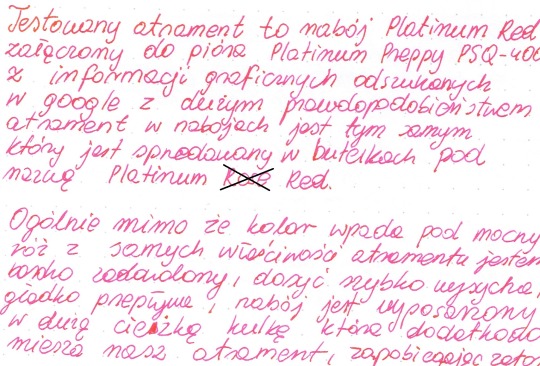 Testowany atrament to nabój Platinum Red
załączony do pióra Platinum Preppy PSQ-400
z informacji graficznych odszukanych
w google z dużym prawdopodobieństwem
atrament w nabojach jest tym samym
który jest sprzedawany w butelkach pod
nazwą Platinum Red.
Ogólnie mimo że kolor wpada pod mocny
róż z samych właściwości atramentu jestem
bardzo zadowolony, dosyć szybko wysycha,
gładko przepływa, nabój jest wyposażony
w dużą ciężką kulkę która dodatkowo
miesza nasz atrament, zapobiegając